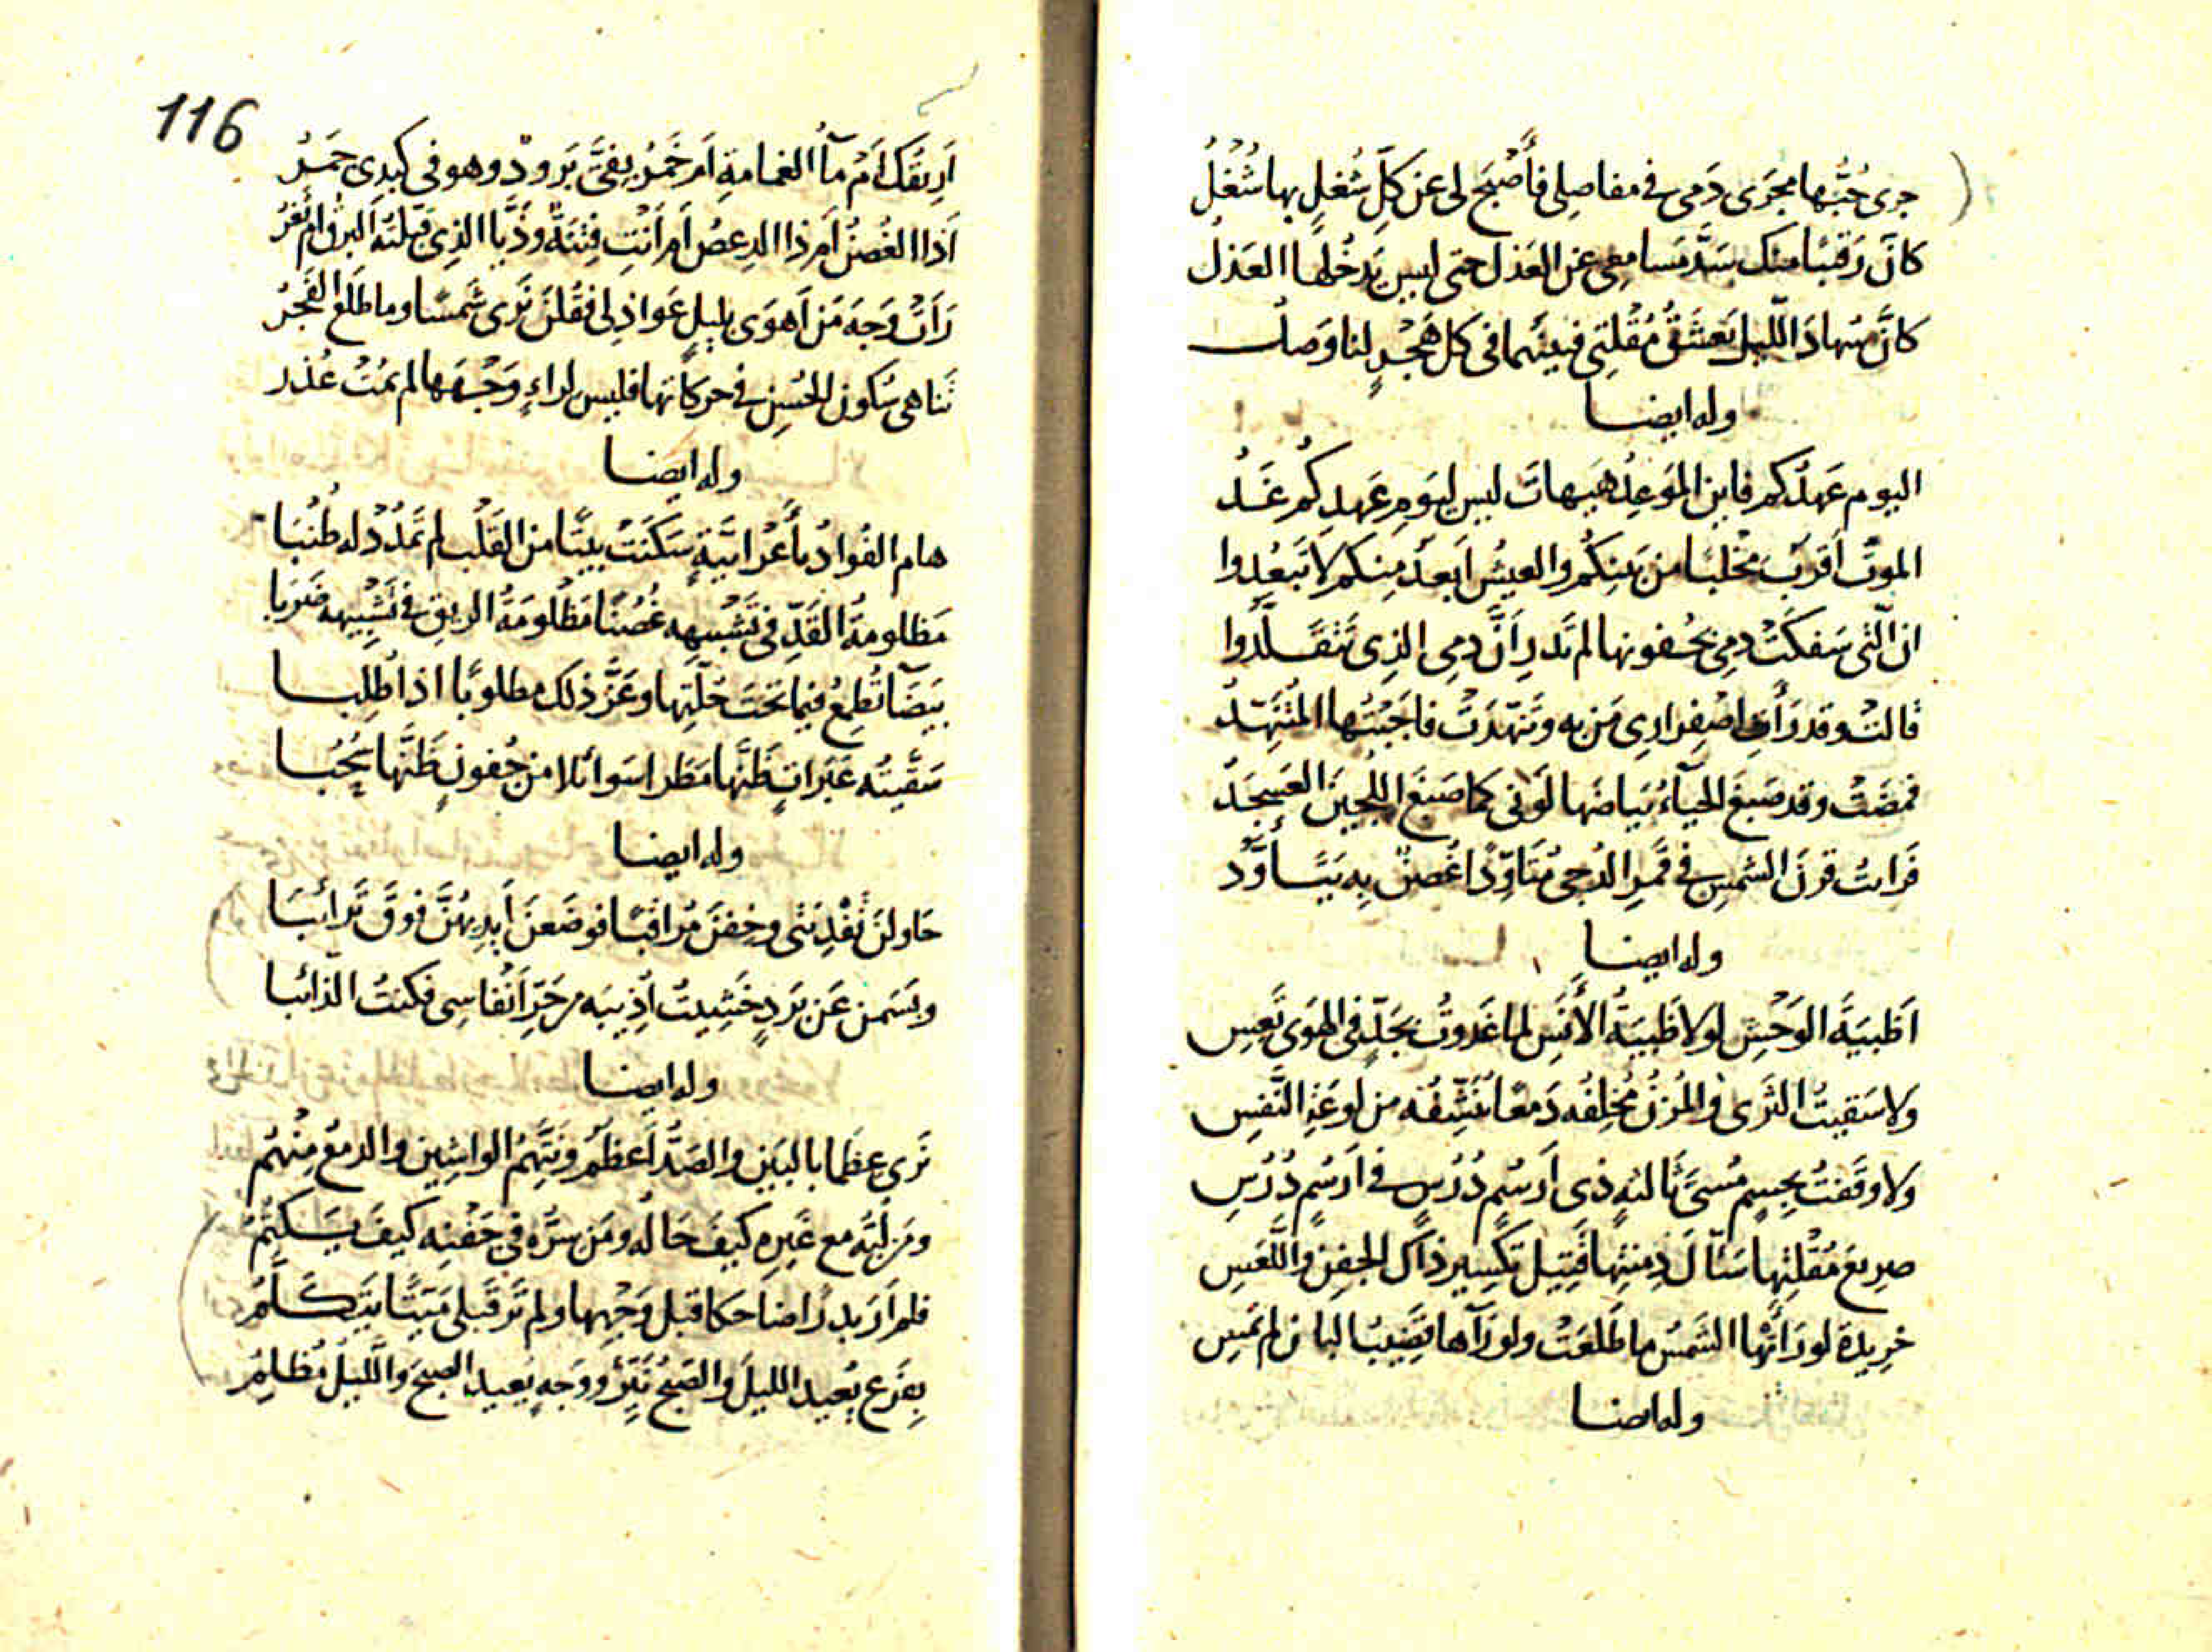 جرى حُبُّها مجرَى دَمى فى مفاصِلى فأَصْبَح لى عن كلِّ شُغلٍ بها شُغْلُ
كانَّ رَقيبًا منك سَدَّ مَسامعى عن العَذل حتى ليس يَدخُلها العَذلُ
كانَّ سُهادَ اللّيل يَعشَقُ مُقْلتِى فبينهما فى كل هَجْرٍ لنا وَصلُ
وله ايضا
اليوم عَهدُكم فاين المَوعِدُ هَيهات ليس ليَومِ عَهدِكُم غَدُ
الموتُ اَقربُ مخْلبًا من بَينكُم والعيشُ اَبعدُ مِنكم لا تَبعُدوا
ان الّتى سَفكَتْ دمِى بجُفونها لم تَدرِ اَنَّ دمِى الذِى تَتقَلَّدُوا
قالتْ وقد رَأَتِ اصْفِرارِى مَن به وتَنهّدَتْ فاجَبْتُها المُتنَهِّدُ
فمضَتْ وقد صَبغَ الحيآءُ بَياضَها لَونى كما صَبغَ اللُّجينَ العَسجَدُ
فَرايتُ قرنَ الشمسِ فى قَمرِ الدُجى مُتَاوِّدًا غُصنٌ بِه يَتَأوَّدُ
وله ايضا
اَظبيَةَ الوَحْشِ لولا ظَبيَةُ الأَنَسِ لما غَدوتُ بجَدٍّ فى الهَوى تَعِسِ
ولا سَقيتُ الثَرى والمُزنُ مُخلِفُه دَمعًا يُنَشِّفُه من لوعَةِ النَّفَسِ
ولا وقَفتُ بجِسمٍ مُسىَ ثالثهٍ ذى اَرسُمٍ دُرُسٍ فى اَرسُمٍ دُرُسِ
صرِيعَ مُقْلتِها سَئّالَ دِمنتِها قَتِيلَ تكسِيرِ ذاك الجفنِ واللَّعَسِ
خرِيدَة لو رَاَتْها الشَمسُ ما طَلَعَت ولو رَآها قضِيبُ البان لم يَمِسِ
وله ايضا
116
اَرِيقُكِ اَمْ مآءُ الغمامةِ اَم خَمْرُ بِفىَّ بَرودٌ وهو فى كبدِى جَمْرُ
اَذا الغُصنُ اَم ذا الدِعصُ اَم اَنتِ فِتنَةٌ وذَيّا الذِى قبّلتُه البرقُ ام ثَغرُ
رَاَتْ وَجهَ مَن اَهوَى بليلٍ عَواذِلى فقُلنَ نَرى شَمسًا وما طَلَع الفَجرُ
تَناهى سُكونُ الحُسنِ فى حركَاتها فليس لراءٍ وَجْهَها لم يَمُتْ عُذر
وله ايضا
هام الفُوادُ بأَعْرابيَّةٍ سَكَنَتْ بيتًا من القَلْب لم تَمْدُدْ له طُنُبَا
مَظلومةُ القَدِّ فى تَشْبيهِه غُصُنًا مَظْلُومَةُ الريقِ فى تَشْبِيهِه ضَرَبا
بيضَآءُ تُطمِعُ فيما تَحْتَ حُلّتِها وعَزَّ ذلك مطلوبًا اذا طُلِبا
سَقَيتُه عَبَراتٍ ظَنَّها مَطَرا سَوائلا من جُفونٍ ظَنَّها سُحُبا
وله ايضا
حَاولنَ تَفْدِيَتى وخِفنَ مُراقبًا فوضَعنَ اَيدِيهُنَّ فوقَ تَرائبَا
وبَسَمنَ عَن بَردٍ خَشِيتُ اُذِيبَه مِن حَرِّ اَنْفاسِى فكنتُ الذّائبا
وله ايضا
نَرى عِظَما بالبَينِ والصَدُّ اَعظَمُ ونَتَّهِمُ الواشِين والدمعُ مِنْهُمُ
ومَن لُبُّه مع غَيرِه كيفَ حَالُه ومَن سرُّه فى جَفْنِه كيفَ يَسَكتُمُ
فلم اَرَ بدرًا ضاحكا قبل وَجْهِها ولم تَر قَبلى مَيّتًا يَتَكَلَّمُ
بِفَرعٍ يُعيد الليلَ والصُبحُ نَيّرٌ ووَجهٍ يَعيد الصبحَ واللّيلُ مُظلِمُ